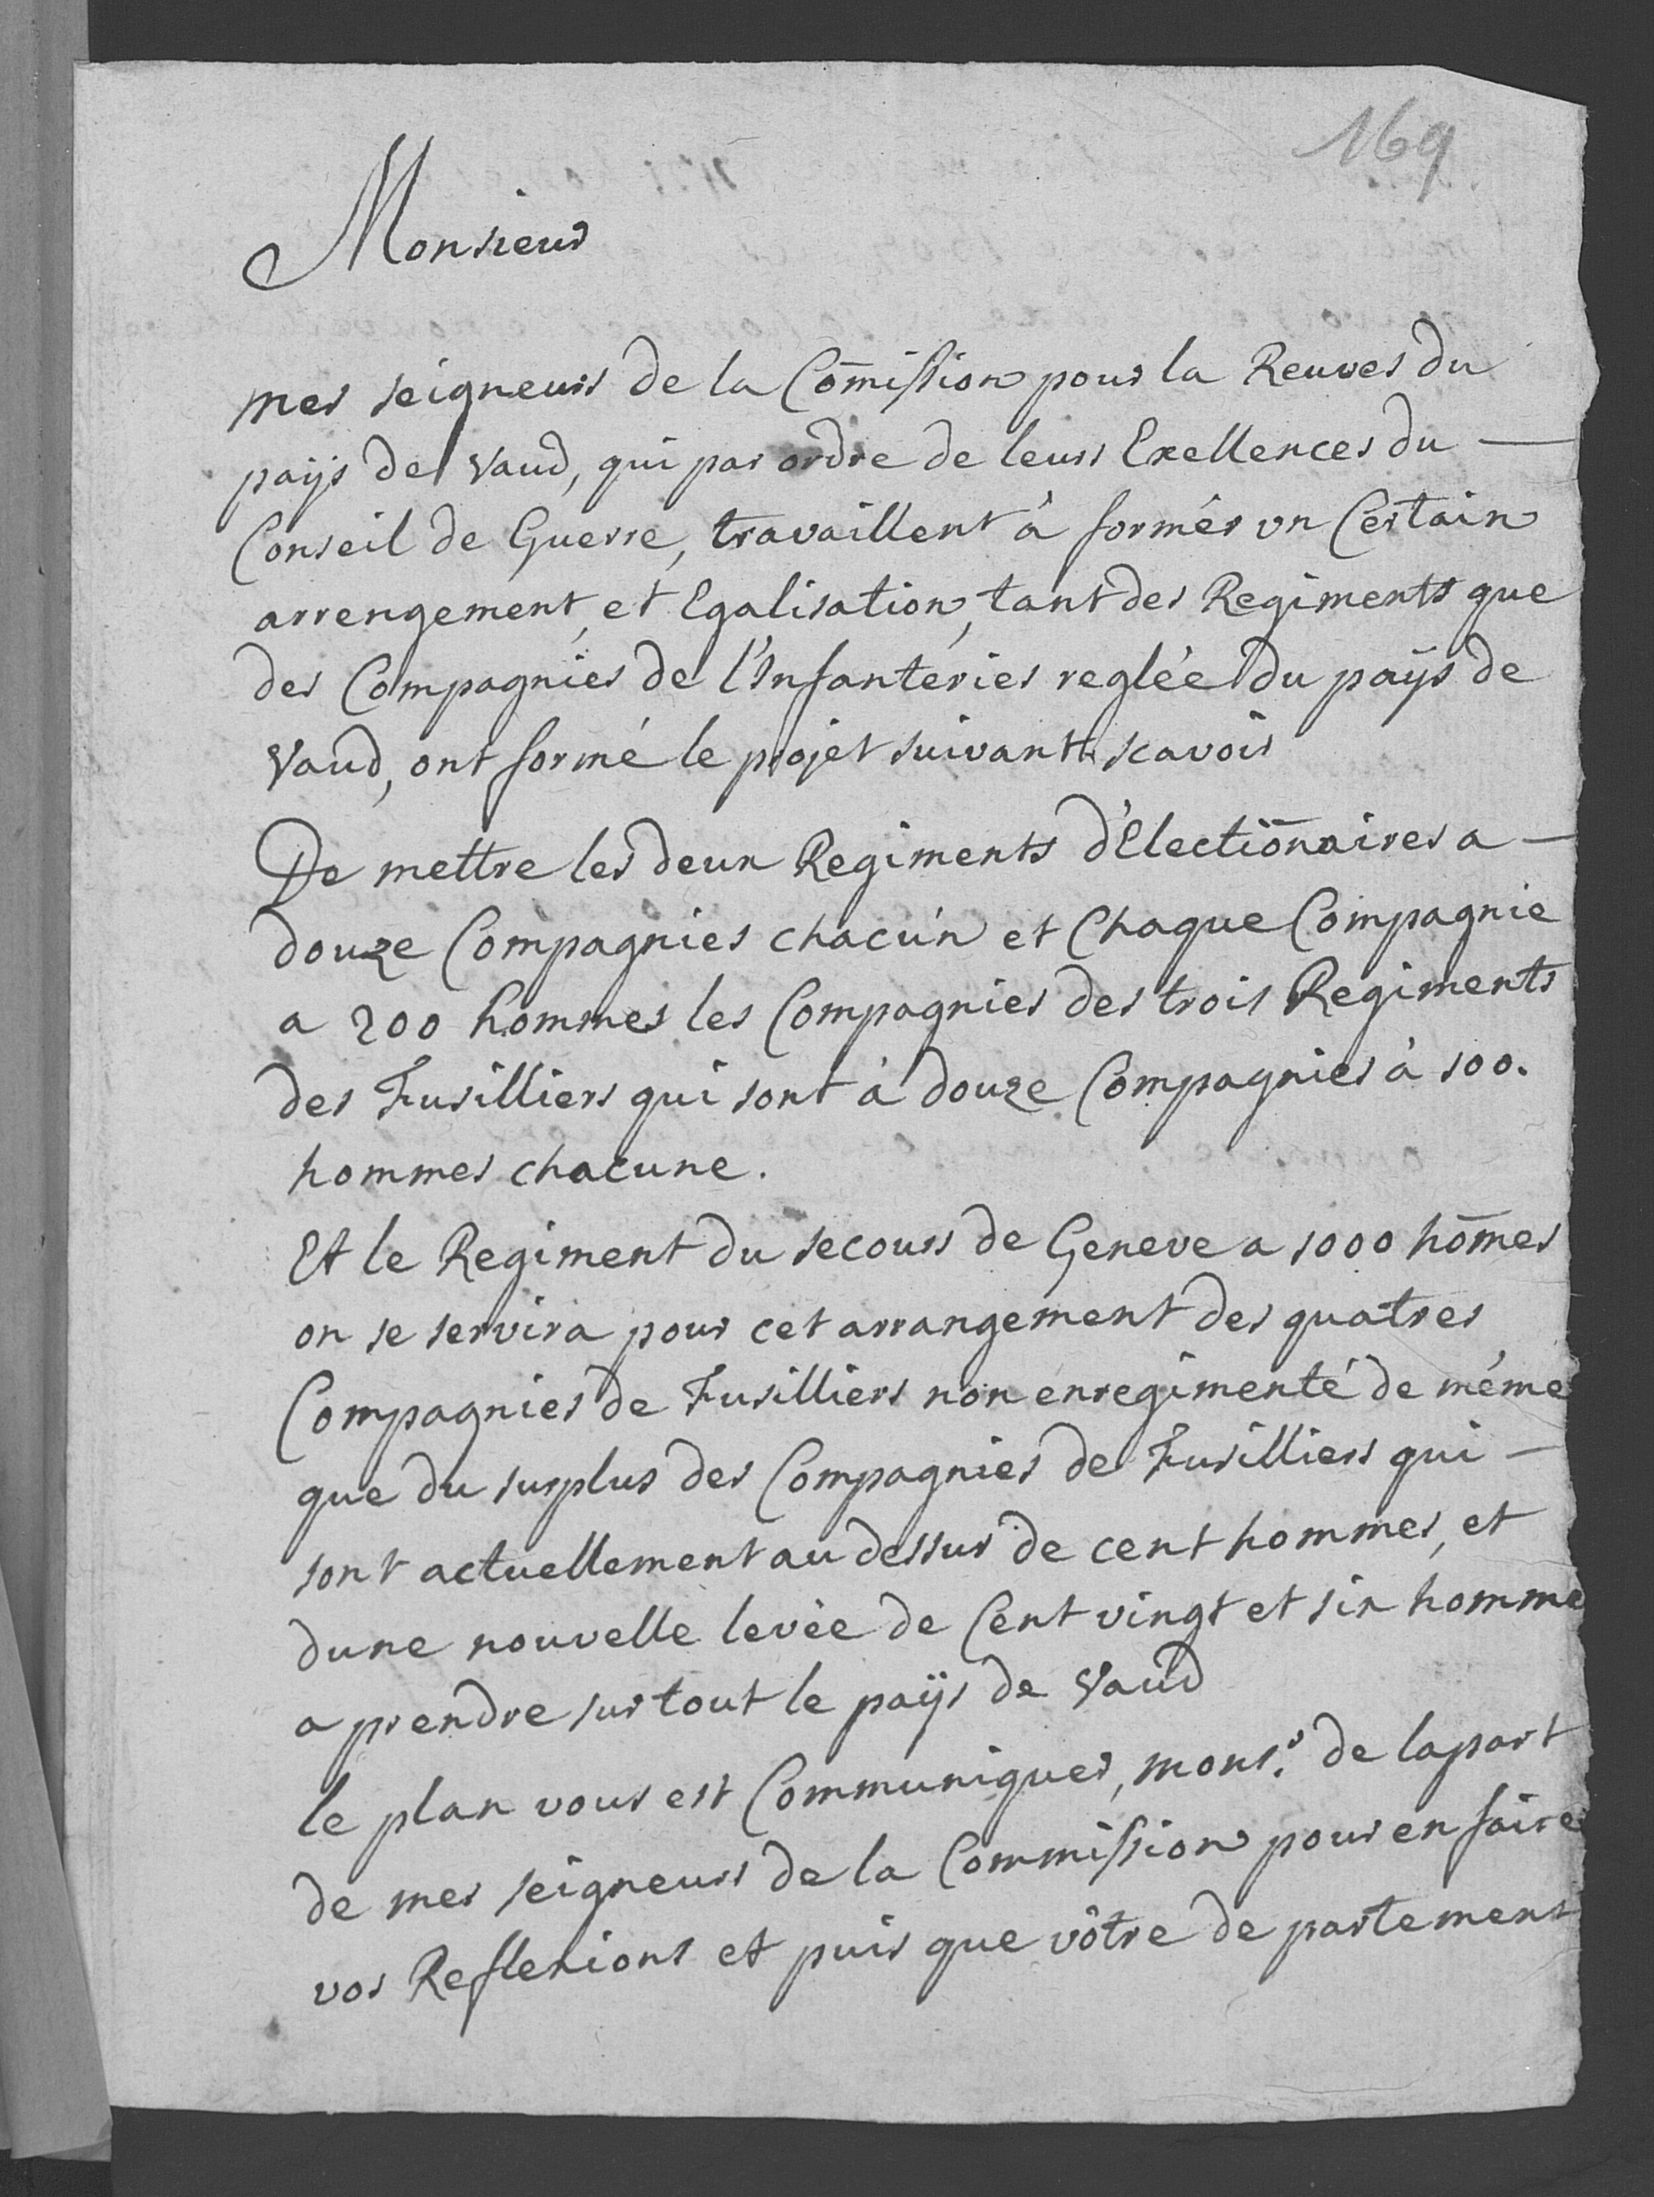 169
Monsieur
mes seigneurs de la Com̄ission pour la Reuves du
païs de Vaud, qui par ordre de leurs Exellences du —
Conseil de Guerre, travaillent à formér un Certain
arrengement, et Egalisation, tant des Regiments que
des Compagnies de l'Infanteries reglée du païs de
Vaud, ont formé le projet suivant scavoir
De mettre les deux Regiments d'Election̄aires a —
douze Compagnies chacún et Chaque Compagnie
a 200 hommes les Compagnies des trois Regiments
des Fusilliers qui sont à douze Compagnies à 100.
hommes chacune.
Et le Regiment du secours de Geneve a 1000 hom̄es
on se servira pour cet arrangement des quatres
Compagnies de Fusilliers non enregimenté de méme
que du surplus des Compagnies de Fusilliers qui —
sont actuellement au dessus de cent hommes, et
dune nouvelle levée de Cent vingt et six homme
a prendre sur tout le païs de Vaud
le plan vous est Communiquer, monsr. de lapart
de mes seigneurs de la Commission pour en faire
vos Reflexions et puis que vôtre de partement